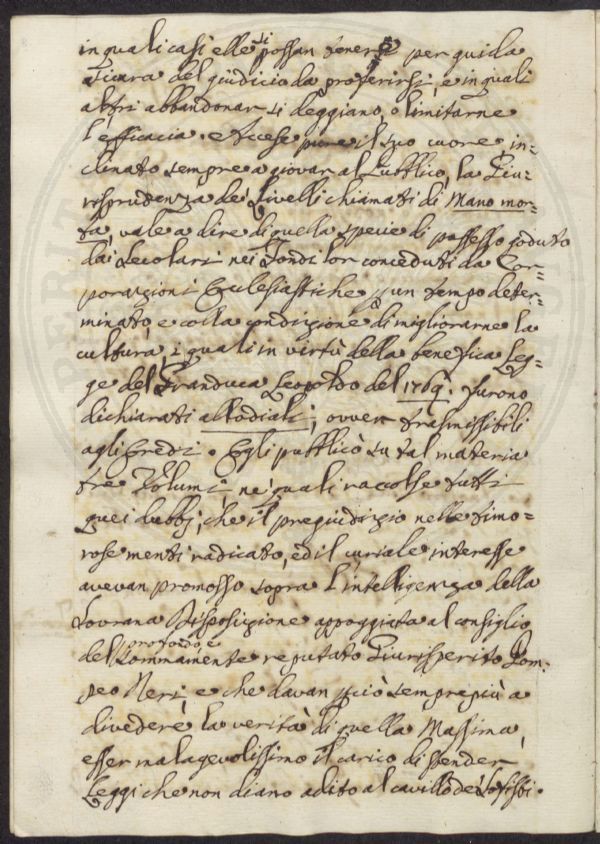 in quali casi elle si possan tenersi per guida
sicura del giudicio da proferirsi, e in quali
altri abbandonar si deggiano, o limitarne
l'efficacia. e tese pure il suo cuore, in=
clinato sempre a giovar al Pubblico, la Giu=
risprudenza de' Livelli chiamati di Mano mor=
ta, vale a dire di quella specie di possesso goduto
dai Secolari nei Fondi lor conceduti da Cor=
porazioni Ecclesiastiche p un tempo deter=
minato, e colla condizione di migliorarne la
cultura, i quali in virtù della benefica Leg=
ge del Granduca Leopoldo del 1769. furono
dichiarati allodiali; ovver trasmissibili
agli Eredi. Egli pubblicò su tal materia
tre Volumi, ne' quali raccolse tutti
quei dubbj, che il pregiudizio nelle timo=
rose menti radicato, ed il curiale interesse
avevan promosso sopra l'intelligenza della
Sovrana Disposizione appoggiata al consiglio
del profondo, e sommamente reputato Giurisperito Pom=
peo Neri, e che davan p ciò sempre più a
divedere la verità di quella Massima,
esser malagevolissimo il carico di stender
Leggi che non diano adito al cavillo de' Sofisti.